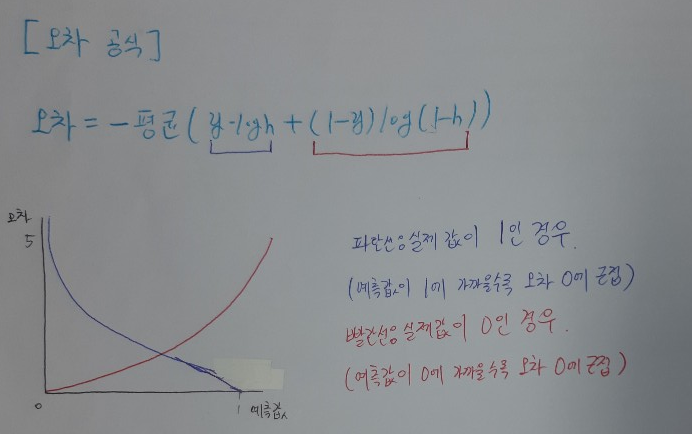 [오차 공식]
오차 = -평균(y·logh + (1-y)log(1-h))
오차
5
0
1
예측값
파란선은 실제 값이 1인 경우.
(예측값이 1에 가까울수록 오차 0에 근접)
빨간선은 실제값이 0인 경우.
(예측값이 0에 가까울수록 오차 0에 근접)